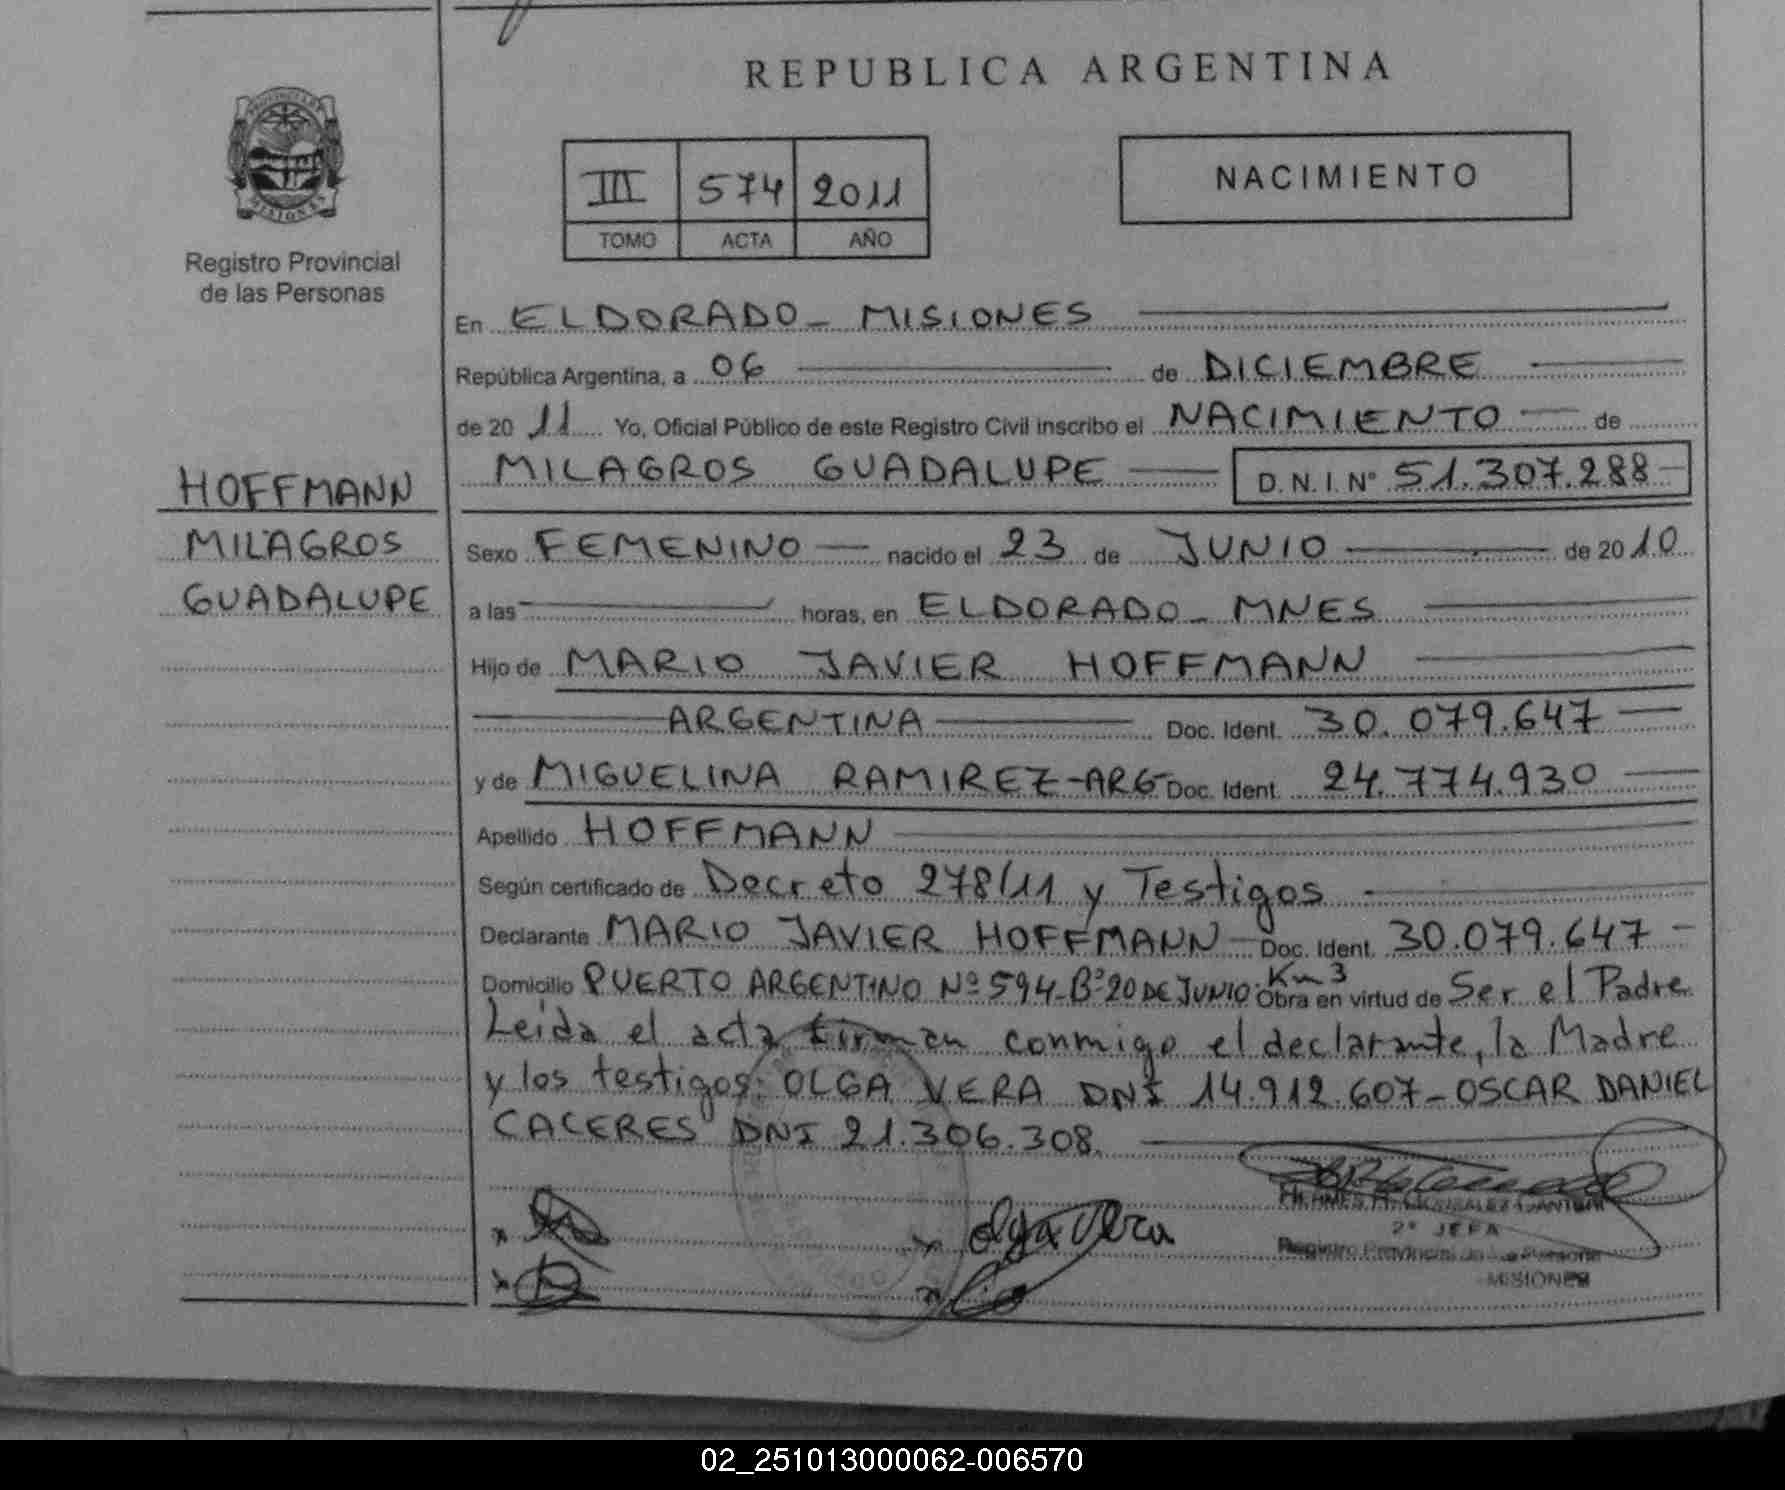 REPUBLICA ARGENTINA
PROVINCIA DE
MISIONES
Registro Provincial
de las Personas
III 574 2011
TOMO ACTA AÑO
NACIMIENTO
En ELDORADO - MISIONES
República Argentina, a 06 de DICIEMBRE
de 20 11 Yo, Oficial Público de este Registro Civil inscribo el NACIMIENTO de
MILAGROS GUADALUPE D.N.I. Nº 51.307.288
HOFFMANN
MILAGROS
GUADALUPE
Sexo FEMENINO nacido el 23 de JUNIO de 20 10
a las horas, en ELDORADO - MNES
Hijo de MARIO JAVIER HOFFMANN
ARGENTINA Doc. Ident. 30.079.647
y de MIGUELINA RAMIREZ-ARG Doc. Ident. 24.774.930
Apellido HOFFMANN
Según certificado de Decreto 278/11 y Testigos
Declarante MARIO JAVIER HOFFMANN Doc. Ident. 30.079.647
Domicilio PUERTO ARGENTINO Nº 594-Bº 20 DE JUNIO Km 3 Obra en virtud de Ser el Padre
Leida el acta firman conmigo el declarante, la Madre
y los testigos: OLGA VERA DNI 14.912.607 - OSCAR DANIEL
CACERES DNI 21.306.308.
Olga Vera
HERMES R. GONZALEZ
2º JEFA
Registro Provincial de las Personas
MISIONES
02_251013000062-006570